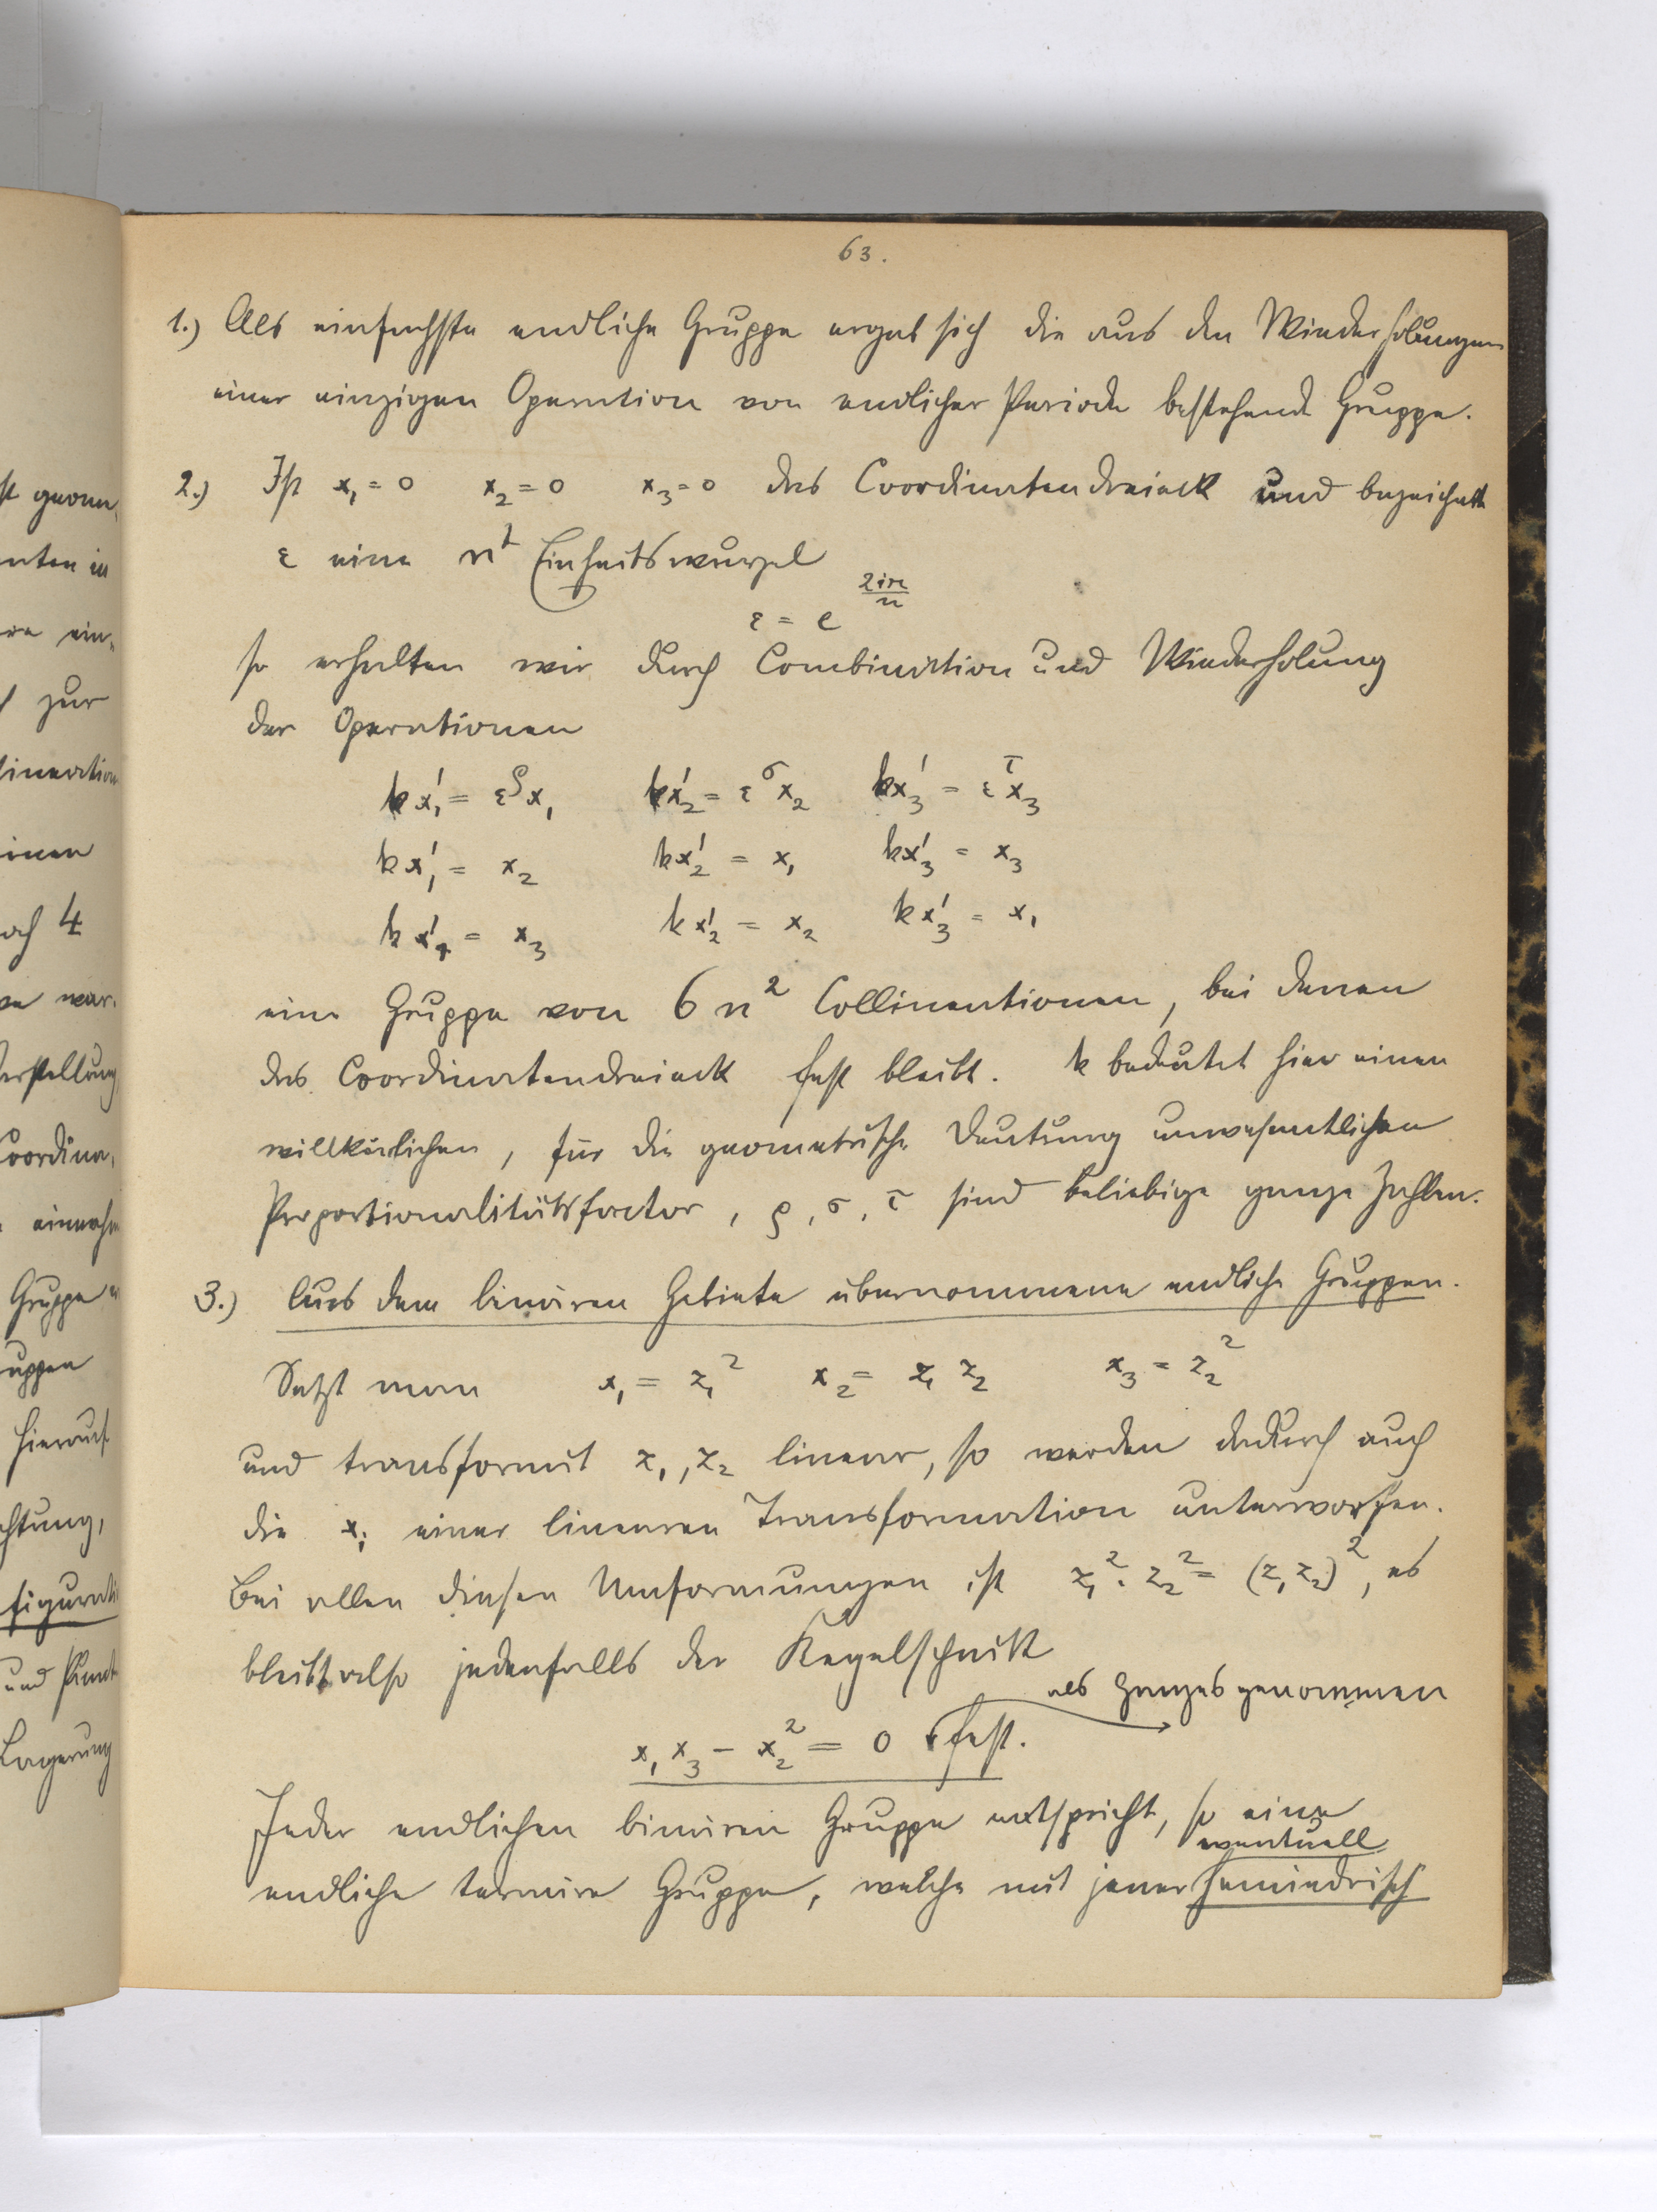 63.
1.) Als einfachste endliche Gruppe ergab sich die aus den Wiederholungen
einer einzigen Operation von endlicher Periode bestehende Gruppe.
2.) Ist x₁ = 0 x₂ = 0 x₃ = 0 das Coordinatendreieck und bezeichnet
ε eine nᵗ Einheitswurzel
ε = e^{2iπ/n}
so erhalten wir durch Combination und Wiederholung
der Operationen
kx₁' = ε^ρ x₁ kx₂' = ε^σ x₂ kx₃' = ε^τ x₃
kx₁' = x₂ kx₂' = x₁ kx₃' = x₃
kx₁' = x₃ kx₂' = x₂ kx₃' = x₁
eine Gruppe von 6n² Collineationen, bei denen
das Coordinatendreieck fest bleibt. k bedeutet hier einen
willkürlichen, für die geometrische Deutung unwesentlichen
Proportionalitätsfactor, ρ, σ, τ sind beliebige ganze Zahlen.
3.) Aus dem binären Gebiete übernommene endliche Gruppen.
Setzt man x₁ = z₁² x₂ = z₁ z₂ x₃ = z₂²
und transformirt z₁, z₂ linear, so werden dadurch auch
die xᵢ einer linearen Transformation unterworfen.
Bei allen diesen Umformungen ist z₁² · z₂² = (z₁ z₂)², es
bleibt also jedenfalls der Kegelschnitt
als Ganzes genommen
x₁ x₃ − x₂² = 0 fest.
Jeder endlichen binären Gruppe entspricht, so eine
eventuell
endliche ternäre Gruppe, welche mit jener hemiedrisch